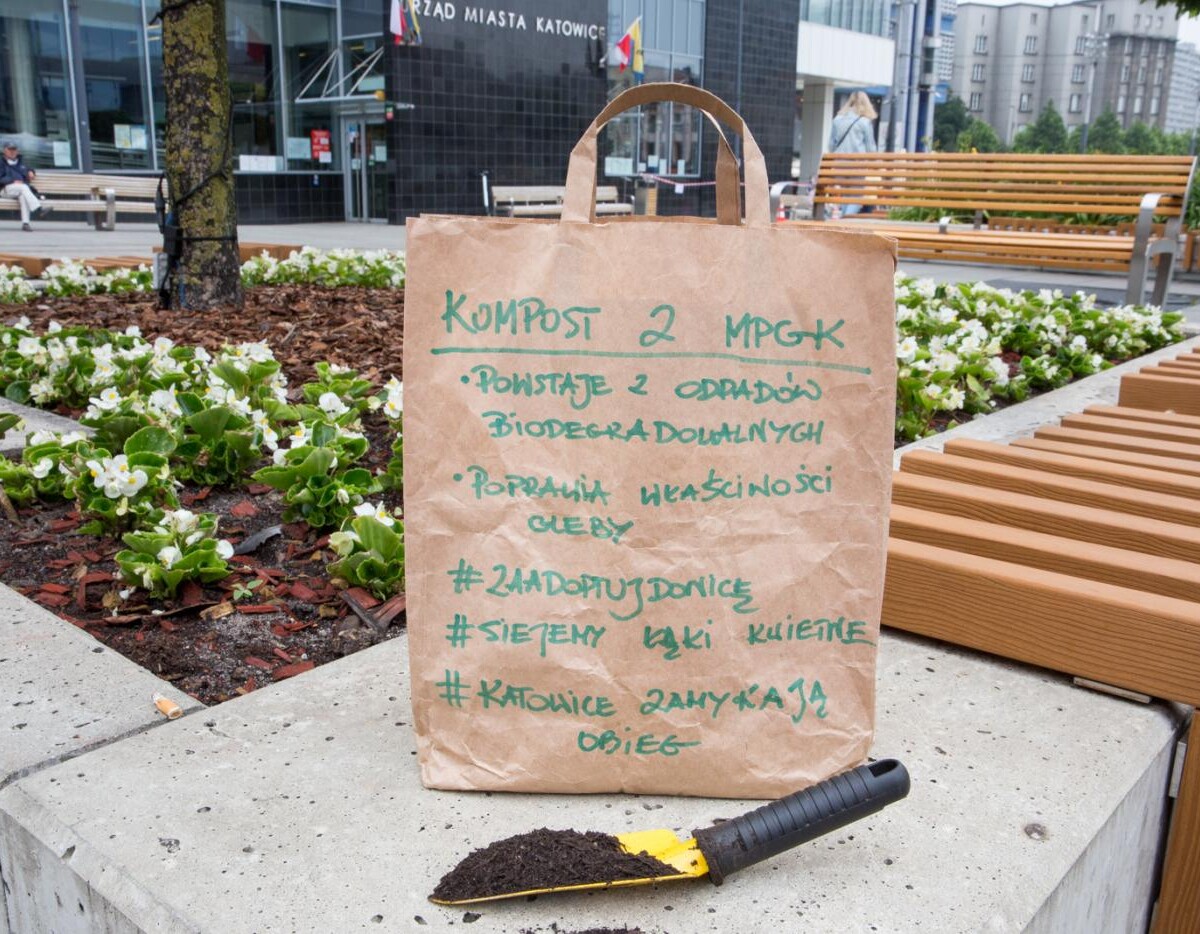 URZĄD MIASTA KATOWICE
KOMPOST Z MPGK
• POWSTAJE Z ODPADÓW
BIODEGRADOWALNYCH
• POPRAWIA WŁAŚCIWOŚCI
GLEBY
#ZAADOPTUJDONICĘ
#SIEJEMY ŁĄKI KWIETNE
#KATOWICE ZAMYKAJĄ
OBIEG